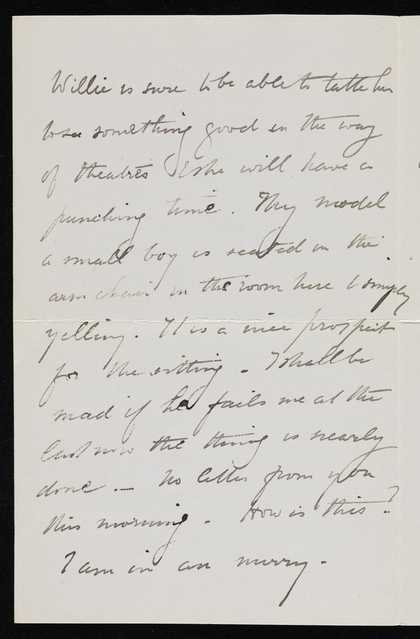 Willie is sure to be able to take her
to see something good in the way
of theatres & she will have a
punching time. My model
a small boy is seated in the
arm chair in the room here & simply
yelling. It is a nice prospect
for the sitting - I shall be
mad if he fails me at the
last now the thing is nearly
done - No letter from you
this morning. How is this?
I am in an